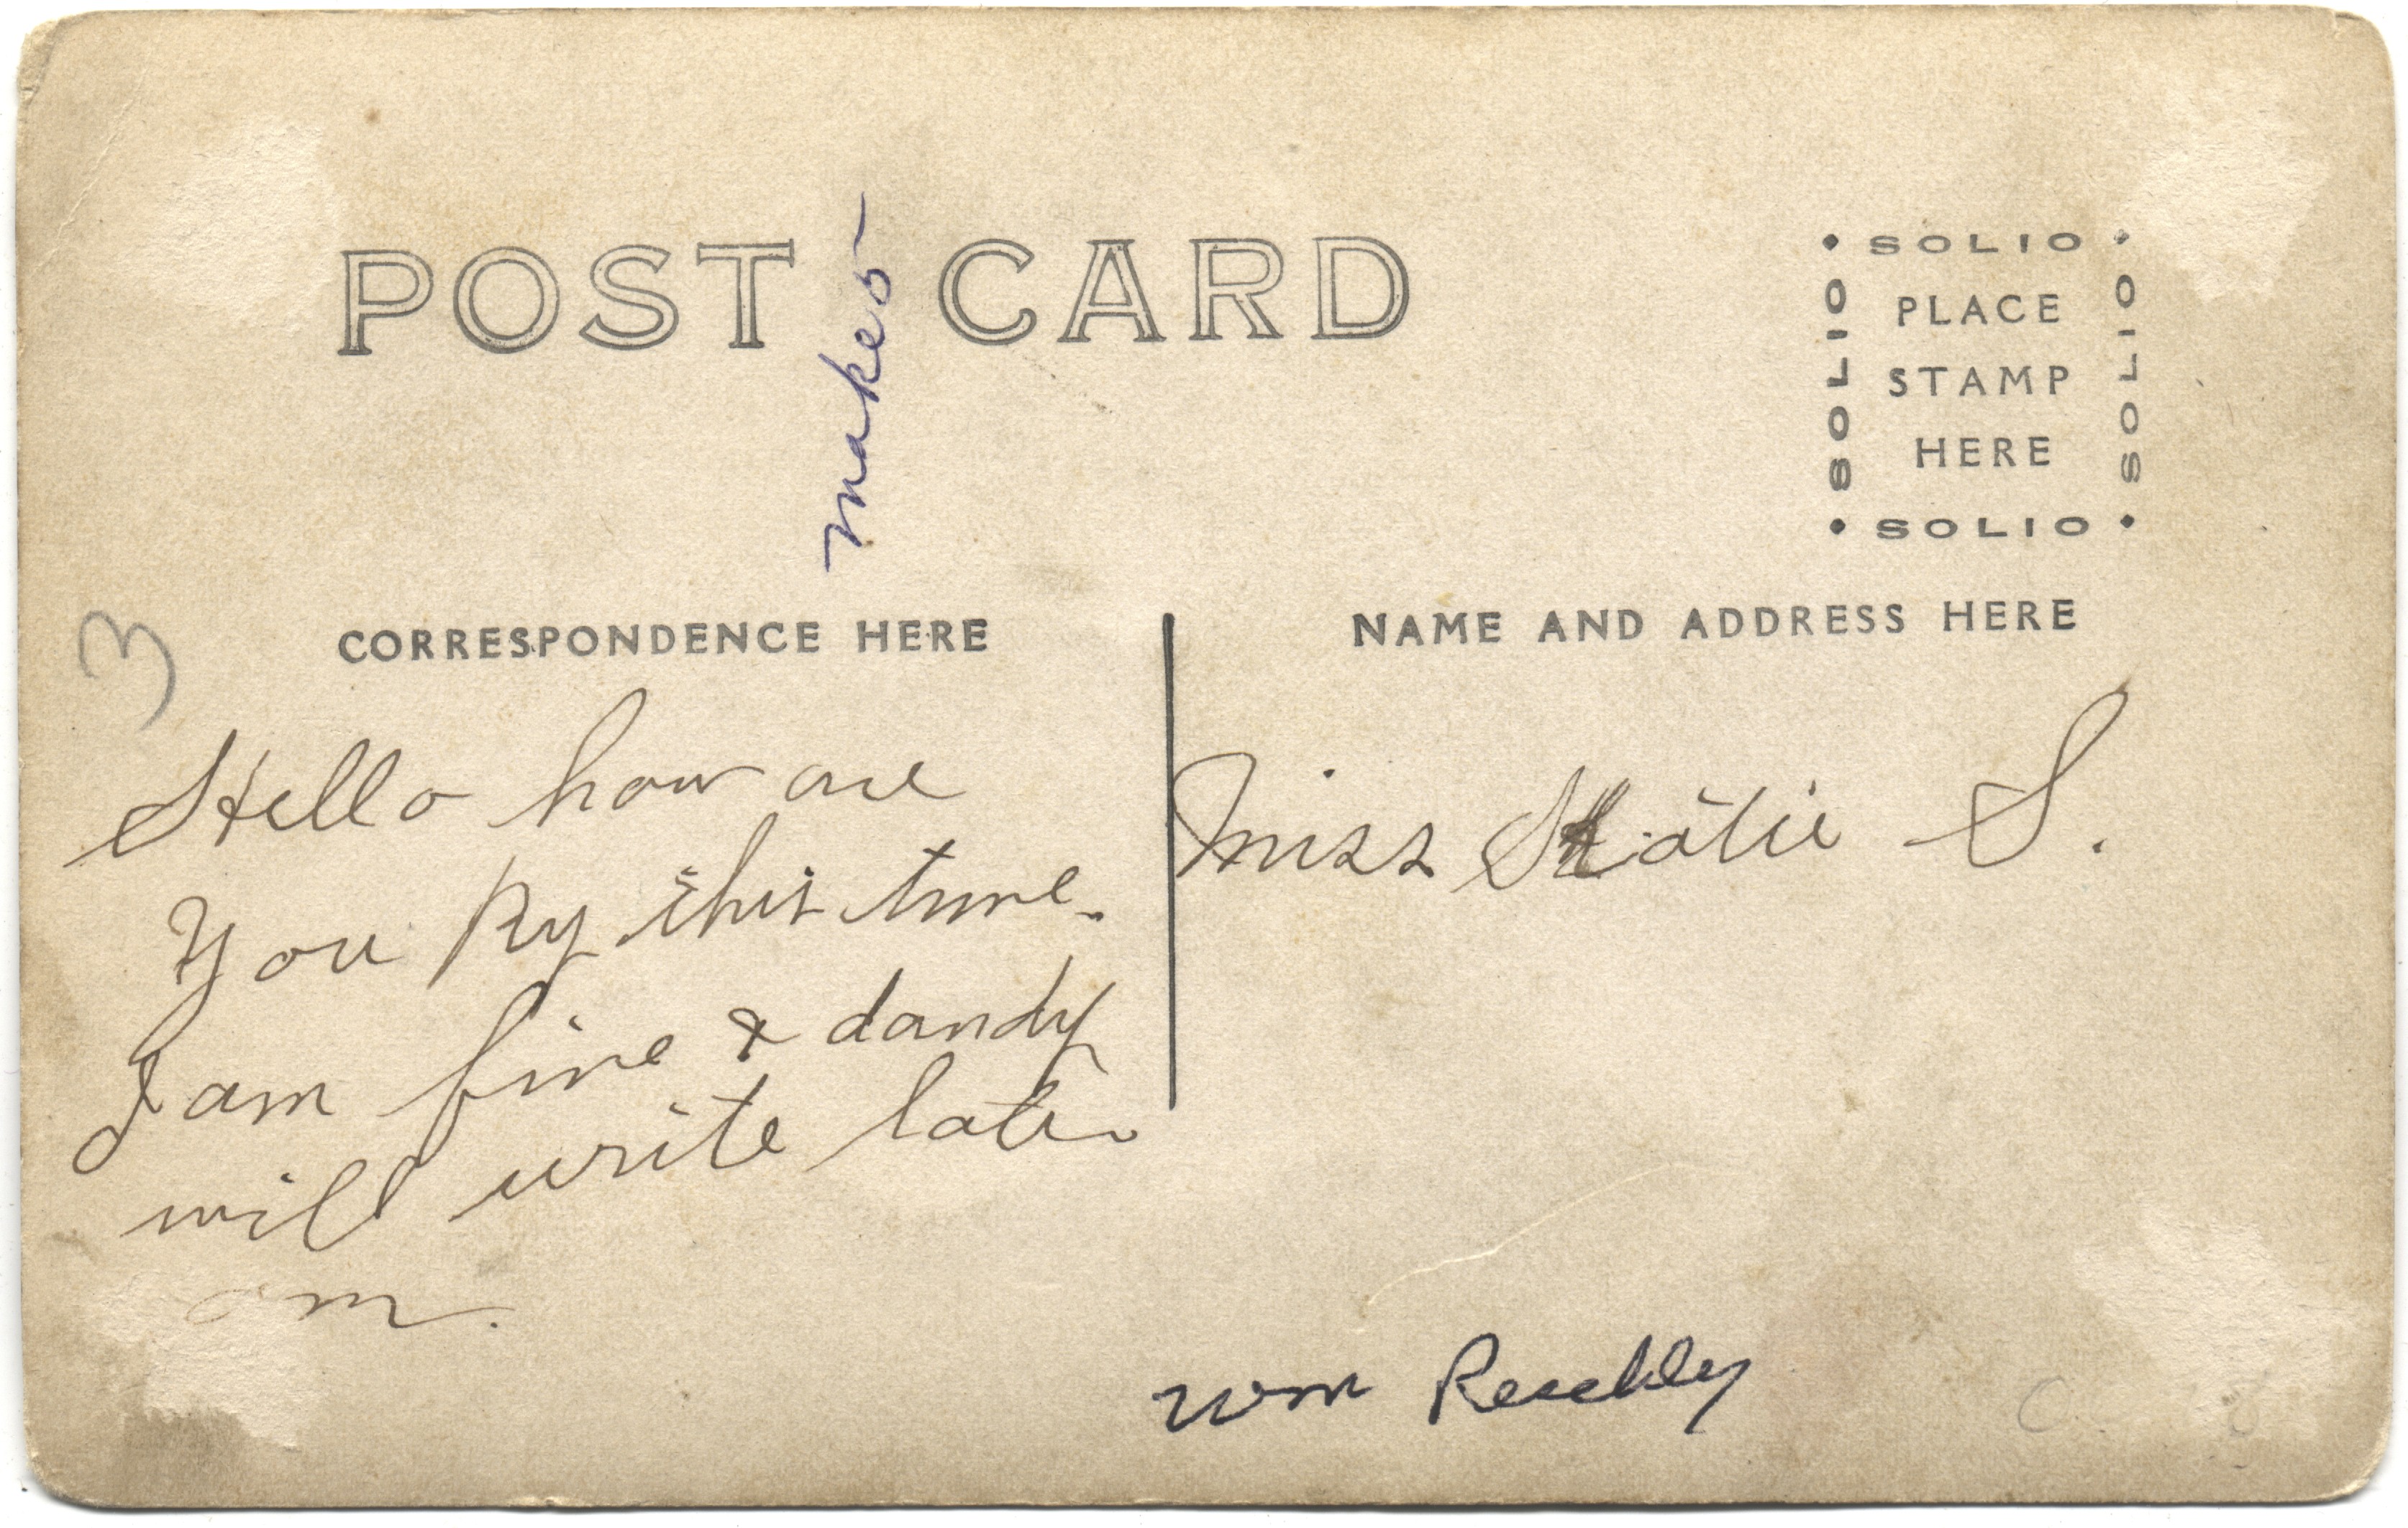 POST CARD
makes
SOLIO
SOLIO PLACE SOLIO
STAMP
HERE
SOLIO
CORRESPONDENCE HERE
NAME AND ADDRESS HERE
3
Hello how are
You By this time.
I am fine & dandy
will write later
m.
Miss Katie S.
Wm